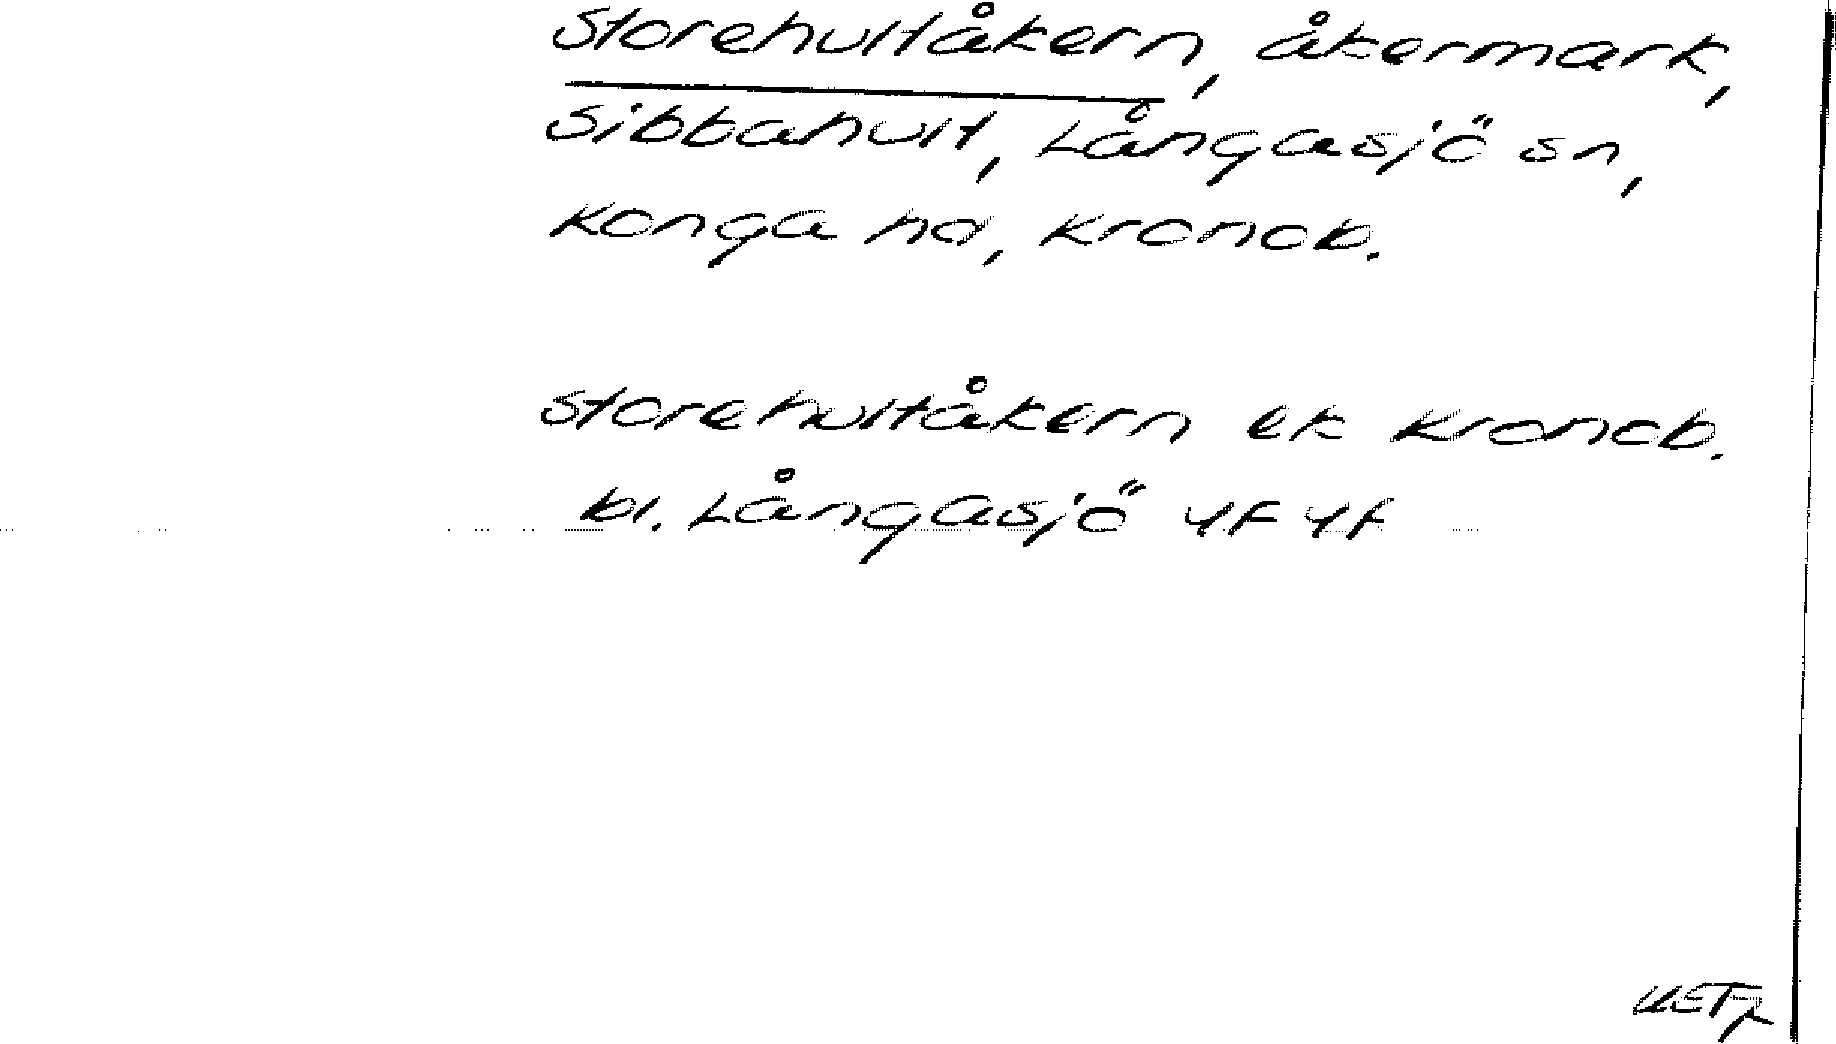 Storehultåkern, åkermark,
Sibbahult, Långasjö sn,
Konga hd, Kronob.
Storehultåkern ek Kronob.
bl. Långasjö 4F 4f